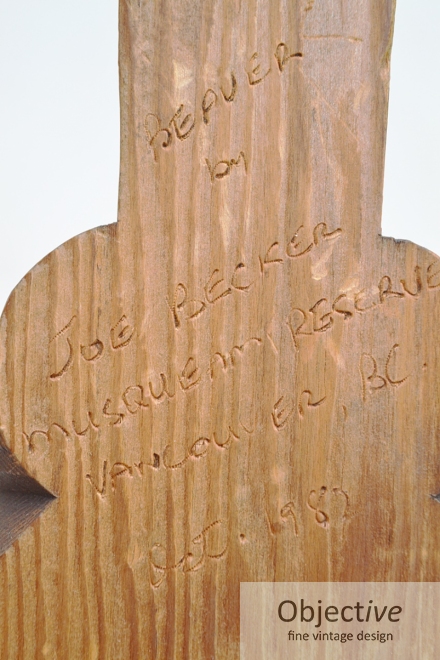 BEAVER
by
JOE BECKER
MUSQUEAM RESERVE
VANCOUVER, BC.
OCT. 1982
Objective
fine vintage design